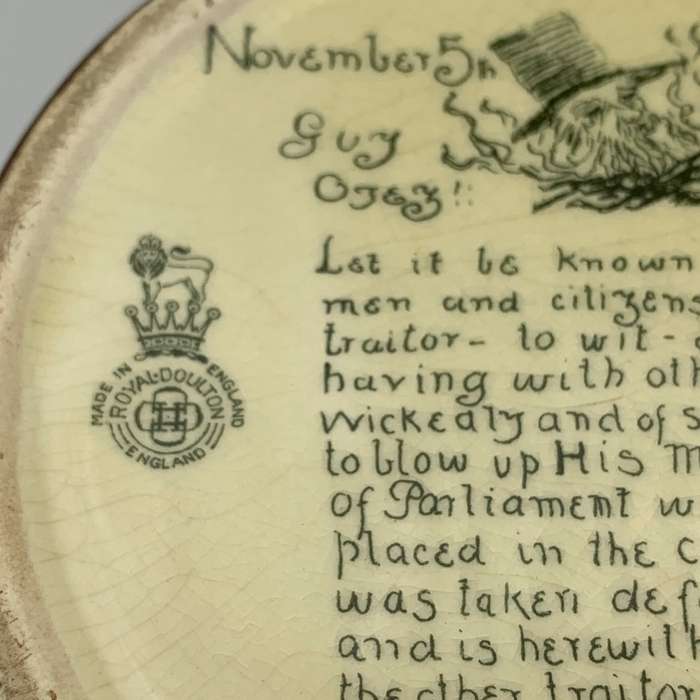 November 5th
Guy
Oyez!!
Let it be known
men and citizens
traitor- to wit -
having with oth
wickedly and of s
to blow up His M
of Parliament w
placed in the c
was taken def
and is herewith
the other traitor
MADE IN ENGLAND
ROYAL·DOULTON
ENGLAND